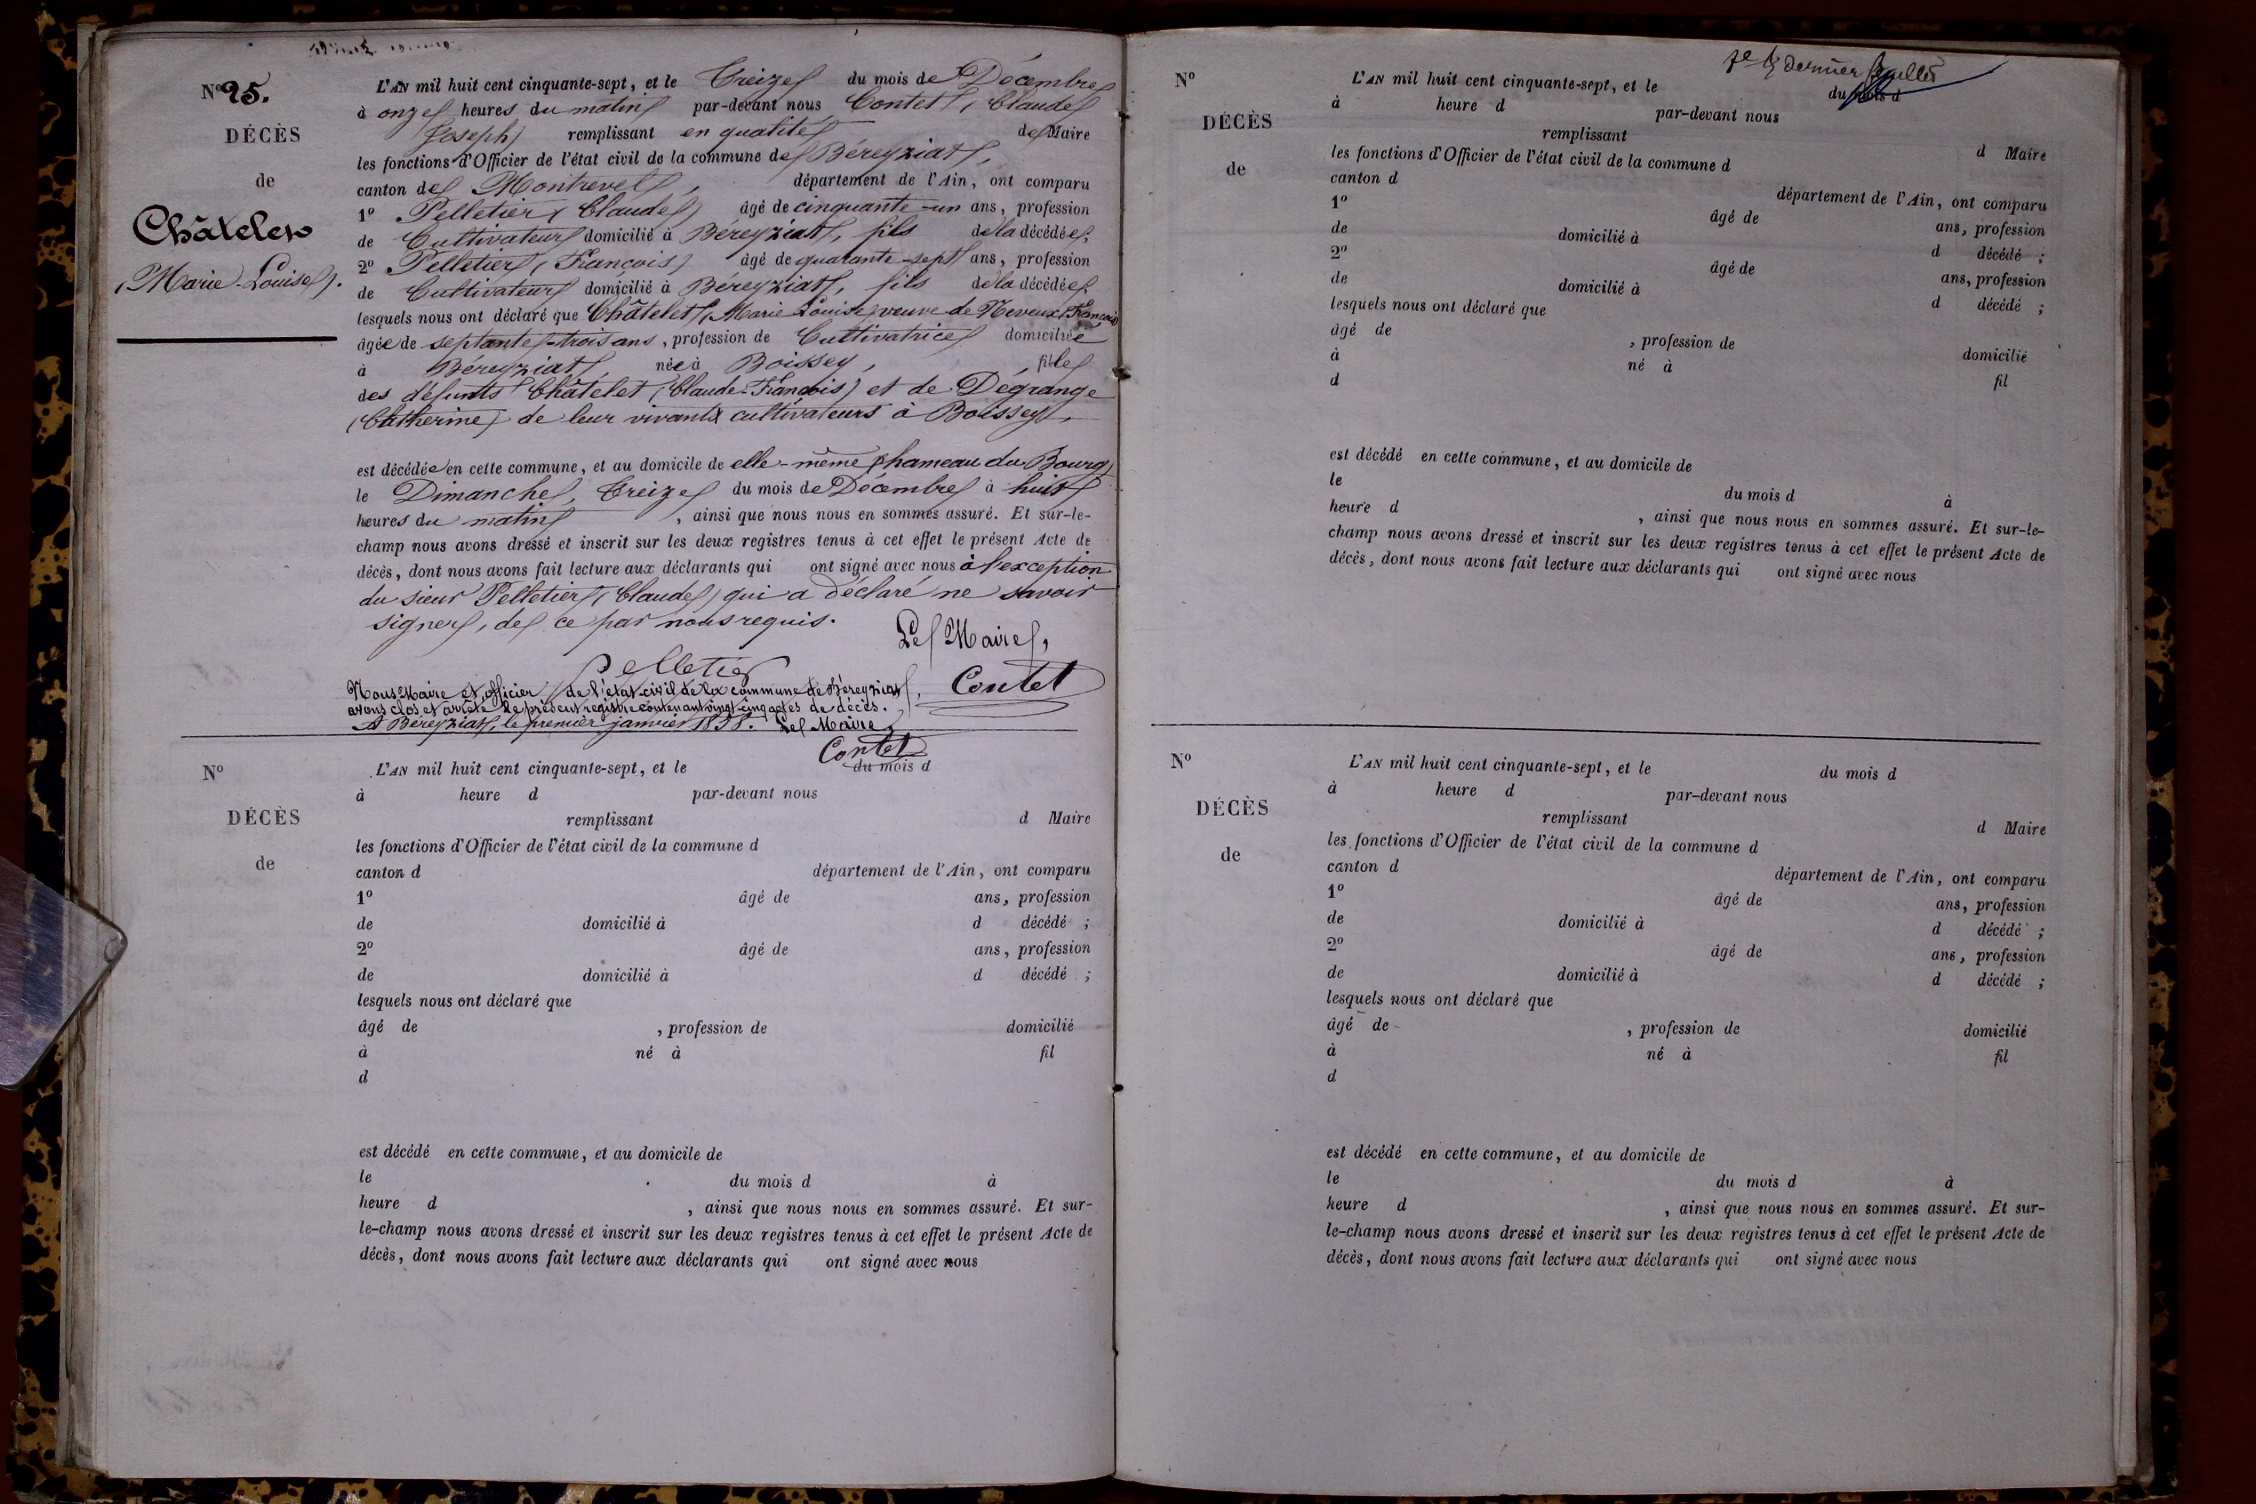 N° 25.
DÉCÈS
de
Châtelet
(Marie-Louise).
L'AN mil huit cent cinquante-sept, et le Treize du mois de Décembre
à onze heures du matin par-devant nous Contet (Claude
Joseph) remplissant en qualité de Maire
les fonctions d'Officier de l'état civil de la commune de Béreyziat,
canton de Montrevel, département de l'Ain, ont comparu
1° Pelletier (Claude) âgé de cinquante-un ans, profession
de Cultivateur domicilié à Béreyziat, fils de la décédée;
2° Pelletier (François) âgé de quarante-sept ans, profession
de Cultivateur domicilié à Béreyziat, fils de la décédée;
lesquels nous ont déclaré que Châtelet (Marie Louise) veuve de Neveux (François)
âgée de septante-trois ans, profession de Cultivatrice domiciliée
à Béreyziat, née à Boissey, fille
des défunts Châtelet (Claude-François) et de Dégrange
(Catherine) de leur vivant cultivateurs à Boissey,
est décédée en cette commune, et au domicile de elle-même, hameau du Bourg,
le Dimanche, Treize du mois de Décembre à huit
heures du matin, ainsi que nous nous en sommes assuré. Et sur-le-
champ nous avons dressé et inscrit sur les deux registres tenus à cet effet le présent Acte de
décès, dont nous avons fait lecture aux déclarants qui ont signé avec nous à l'exception
du sieur Pelletier (Claude) qui a déclaré ne savoir
signer, de ce par nous requis.
Le Maire,
Pelletier
Contet
Nous Maire et officier de l'état civil de la commune de Béreyziat,
avons clos et arrêté le présent registre contenant vingt cinq actes de décès.
A Béreyziat, le premier janvier 1858. Le Maire
Contet
N°
DÉCÈS
de
L'AN mil huit cent cinquante-sept, et le du mois d
à heure d par-devant nous
remplissant d Maire
les fonctions d'Officier de l'état civil de la commune d
canton d département de l'Ain, ont comparu
1° âgé de ans, profession
de domicilié à d décédé ;
2° âgé de ans, profession
de domicilié à d décédé ;
lesquels nous ont déclaré que
âgé de , profession de domicilié
à né à fil
d
est décédé en cette commune, et au domicile de
le du mois d à
heure d , ainsi que nous nous en sommes assuré. Et sur-
le-champ nous avons dressé et inscrit sur les deux registres tenus à cet effet le présent Acte de
décès, dont nous avons fait lecture aux déclarants qui ont signé avec nous
dernier feuillet
N°
DÉCÈS
de
L'AN mil huit cent cinquante-sept, et le du mois d
à heure d par-devant nous
remplissant d Maire
les fonctions d'Officier de l'état civil de la commune d
canton d département de l'Ain, ont comparu
1° âgé de ans, profession
de domicilié à d décédé ;
2° âgé de ans, profession
de domicilié à d décédé ;
lesquels nous ont déclaré que
âgé de , profession de domicilié
à né à fil
d
est décédé en cette commune, et au domicile de
le du mois d à
heure d , ainsi que nous nous en sommes assuré. Et sur-le-
champ nous avons dressé et inscrit sur les deux registres tenus à cet effet le présent Acte de
décès, dont nous avons fait lecture aux déclarants qui ont signé avec nous
N°
DÉCÈS
de
L'AN mil huit cent cinquante-sept, et le du mois d
à heure d par-devant nous
remplissant d Maire
les fonctions d'Officier de l'état civil de la commune d
canton d département de l'Ain, ont comparu
1° âgé de ans, profession
de domicilié à d décédé ;
2° âgé de ans, profession
de domicilié à d décédé ;
lesquels nous ont déclaré que
âgé de , profession de domicilié
à né à fil
d
est décédé en cette commune, et au domicile de
le du mois d à
heure d , ainsi que nous nous en sommes assuré. Et sur-
le-champ nous avons dressé et inscrit sur les deux registres tenus à cet effet le présent Acte de
décès, dont nous avons fait lecture aux déclarants qui ont signé avec nous